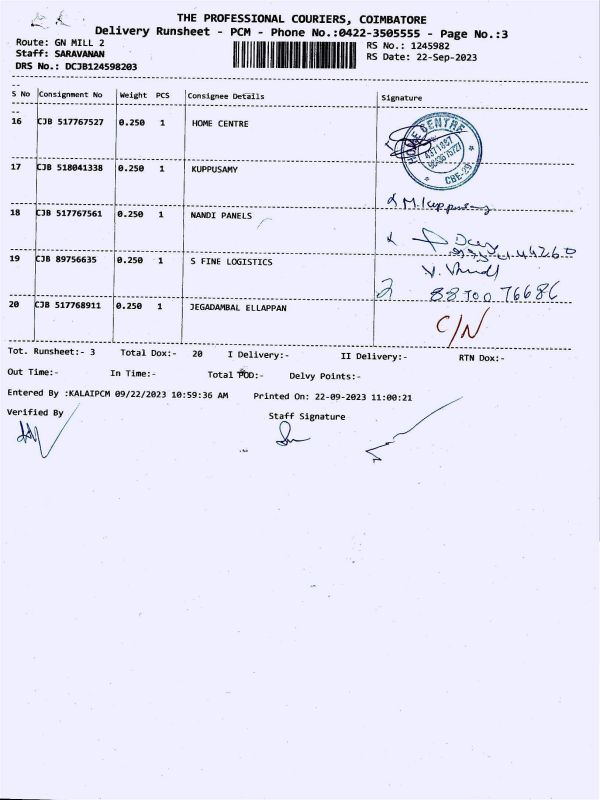 THE PROFESSIONAL COURIERS, COIMBATORE
Delivery Runsheet - PCM - Phone No.:0422-3505555 - Page No.:3
Route: GN MILL 2
RS No.: 1245982
Staff: SARAVANAN
RS Date: 22-Sep-2023
DRS No.: DCJB124598203
S No Consignment No Weight PCS Consignee Details Signature
16 CJB 517767527 0.250 1 HOME CENTRE
HOME CENTRE
CBE-29
17 CJB 518041338 0.250 1 KUPPUSAMY
M. Kuppusamy
18 CJB 517767561 0.250 1 NANDI PANELS
19 CJB 89756635 0.250 1 S FINE LOGISTICS
88700 76686
20 CJB 517768911 0.250 1 JEGADAMBAL ELLAPPAN
C/N
Tot. Runsheet:- 3 Total Dox:- 20 I Delivery:- II Delivery:- RTN Dox:-
Out Time:- In Time:- Total POD:- Delvy Points:-
Entered By :KALAIPCM 09/22/2023 10:59:36 AM Printed On: 22-09-2023 11:00:21
Verified By Staff Signature